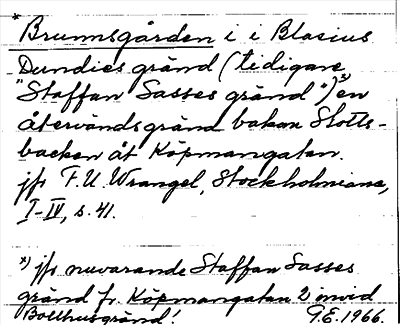 * Brunnsgården i i Blasius
Dundies gränd (tidigare
"Staffan Sasses gränd")*) en
återvändsgränd bakom Slotts-
backen åt Köpmangatan.
jfr F.U. Wrangel, Stockholmiana,
I-IV, s. 41.
*) jfr nuvarande Staffan Sasses
gränd fr. Köpmangatan 2 invid
Bollhusgränd!
G.E. 1966.